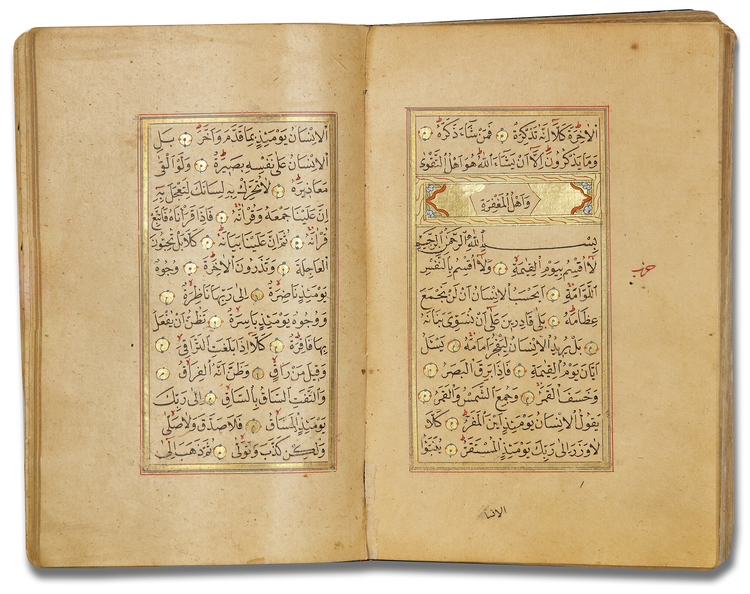 الْاٰخِرَةَ كَلَّا اِنَّهُ تَذْكِرَةٌ فَمَنْ شَاءَ ذَكَرَهُ
وَمَا يَذْكُرُونَ اِلَّا اَنْ يَشَاءَ اللّٰهُ هُوَ اَهْلُ التَّقْوٰى
وَاَهْلُ الْمَغْفِرَةِ
بِسْمِ اللّٰهِ الرَّحْمٰنِ الرَّحِيمِ
لَا اُقْسِمُ بِيَوْمِ الْقِيٰمَةِ وَلَا اُقْسِمُ بِالنَّفْسِ
اللَّوَّامَةِ اَيَحْسَبُ الْاِنْسَانُ اَنْ لَنْ نَجْمَعَ
عِظَامَهُ بَلٰى قَادِرِينَ عَلٰى اَنْ نُسَوِّىَ بَنَانَهُ
بَلْ يُرِيدُ الْاِنْسَانُ لِيَفْجُرَ اَمَامَهُ يَسْئَلُ
اَيَّانَ يَوْمُ الْقِيٰمَةِ فَاِذَا بَرِقَ الْبَصَرُ
وَخَسَفَ الْقَمَرُ وَجُمِعَ الشَّمْسُ وَالْقَمَرُ
يَقُولُ الْاِنْسَانُ يَوْمَئِذٍ اَيْنَ الْمَفَرُّ كَلَّا
لَا وَزَرَ اِلٰى رَبِّكَ يَوْمَئِذٍ الْمُسْتَقَرُّ يُنَبَّؤُا
الانسا
الْاِنْسَانُ يَوْمَئِذٍ بِمَا قَدَّمَ وَاَخَّرَ بَلِ
الْاِنْسَانُ عَلٰى نَفْسِهِ بَصِيرَةٌ وَلَوْ اَلْقٰى
مَعَاذِيرَهُ لَا تُحَرِّكْ بِهِ لِسَانَكَ لِتَعْجَلَ بِهِ
اِنَّ عَلَيْنَا جَمْعَهُ وَقُرْاٰنَهُ فَاِذَا قَرَاْنَاهُ فَاتَّبِعْ
قُرْاٰنَهُ ثُمَّ اِنَّ عَلَيْنَا بَيَانَهُ كَلَّا بَلْ تُحِبُّونَ
الْعَاجِلَةَ وَتَذَرُونَ الْاٰخِرَةَ وُجُوهٌ
يَوْمَئِذٍ نَاضِرَةٌ اِلٰى رَبِّهَا نَاظِرَةٌ
وَوُجُوهٌ يَوْمَئِذٍ بَاسِرَةٌ تَظُنُّ اَنْ يُفْعَلَ
بِهَا فَاقِرَةٌ كَلَّا اِذَا بَلَغَتِ التَّرَاقِىَ
وَقِيلَ مَنْ رَاقٍ وَظَنَّ اَنَّهُ الْفِرَاقُ
وَالْتَفَّتِ السَّاقُ بِالسَّاقِ اِلٰى رَبِّكَ
يَوْمَئِذٍ الْمَسَاقُ فَلَا صَدَّقَ وَلَا صَلّٰى
وَلٰكِنْ كَذَّبَ وَتَوَلّٰى ثُمَّ ذَهَبَ اِلٰى